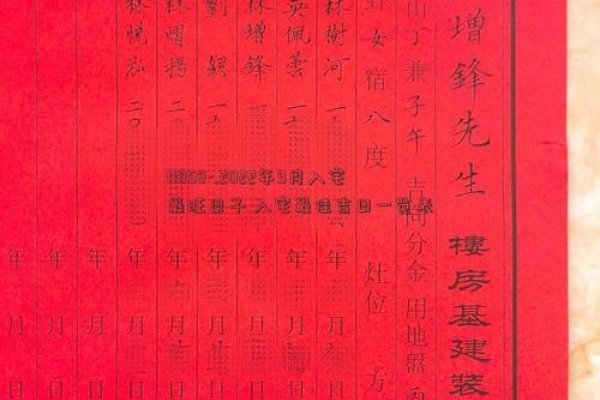 增鋒先生 樓房基建裝
山丁兼子午 吉向分金 用地盤
女宿八度 灶位 方
林樹河 一 年 月 日
佩雲 一 年 月 日
林增鋒 一 年 月 日
劉 一 年 月 日
林 二 年 月 日
林悅泓 二〇 年 月 日
年 月 日
年 月 日
年 月 日
2022年9月入宅
最旺日子 入宅最佳吉日一览表